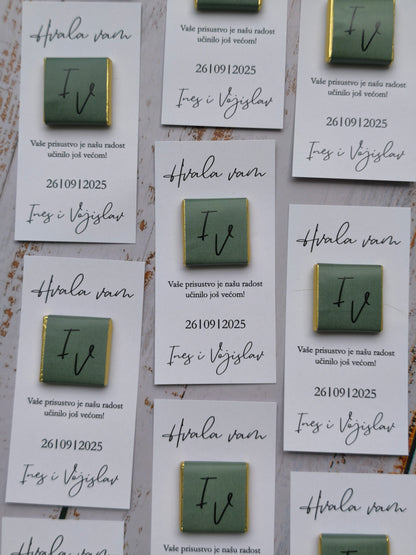 Hvala vam
I
V
Vaše prisustvo je našu radost
učinilo još većom!
26|09|2025
Ines i Vojislav
Vaše prisustvo je našu radost
učinilo još većom!
26|09|2025
Ines i Vojislav
I
V
Vaše prisustvo je našu radost
učinilo još većom!
26|09|2025
Ines i Vojislav
Hvala vam
I
V
Vaše prisustvo je našu radost
učinilo još većom!
26|09|2025
Ines i Vojislav
Hvala vam
I
V
Vaše prisustvo je našu radost
učinilo još većom!
26|09|2025
Ines i Vojislav
Hvala vam
I
V
Vaše prisustvo je našu radost
učinilo još većom!
26|09|2025
Ines i Vojislav
Hvala vam
I
V
Vaše prisustvo je našu radost
Hvala vam
Hvala vam